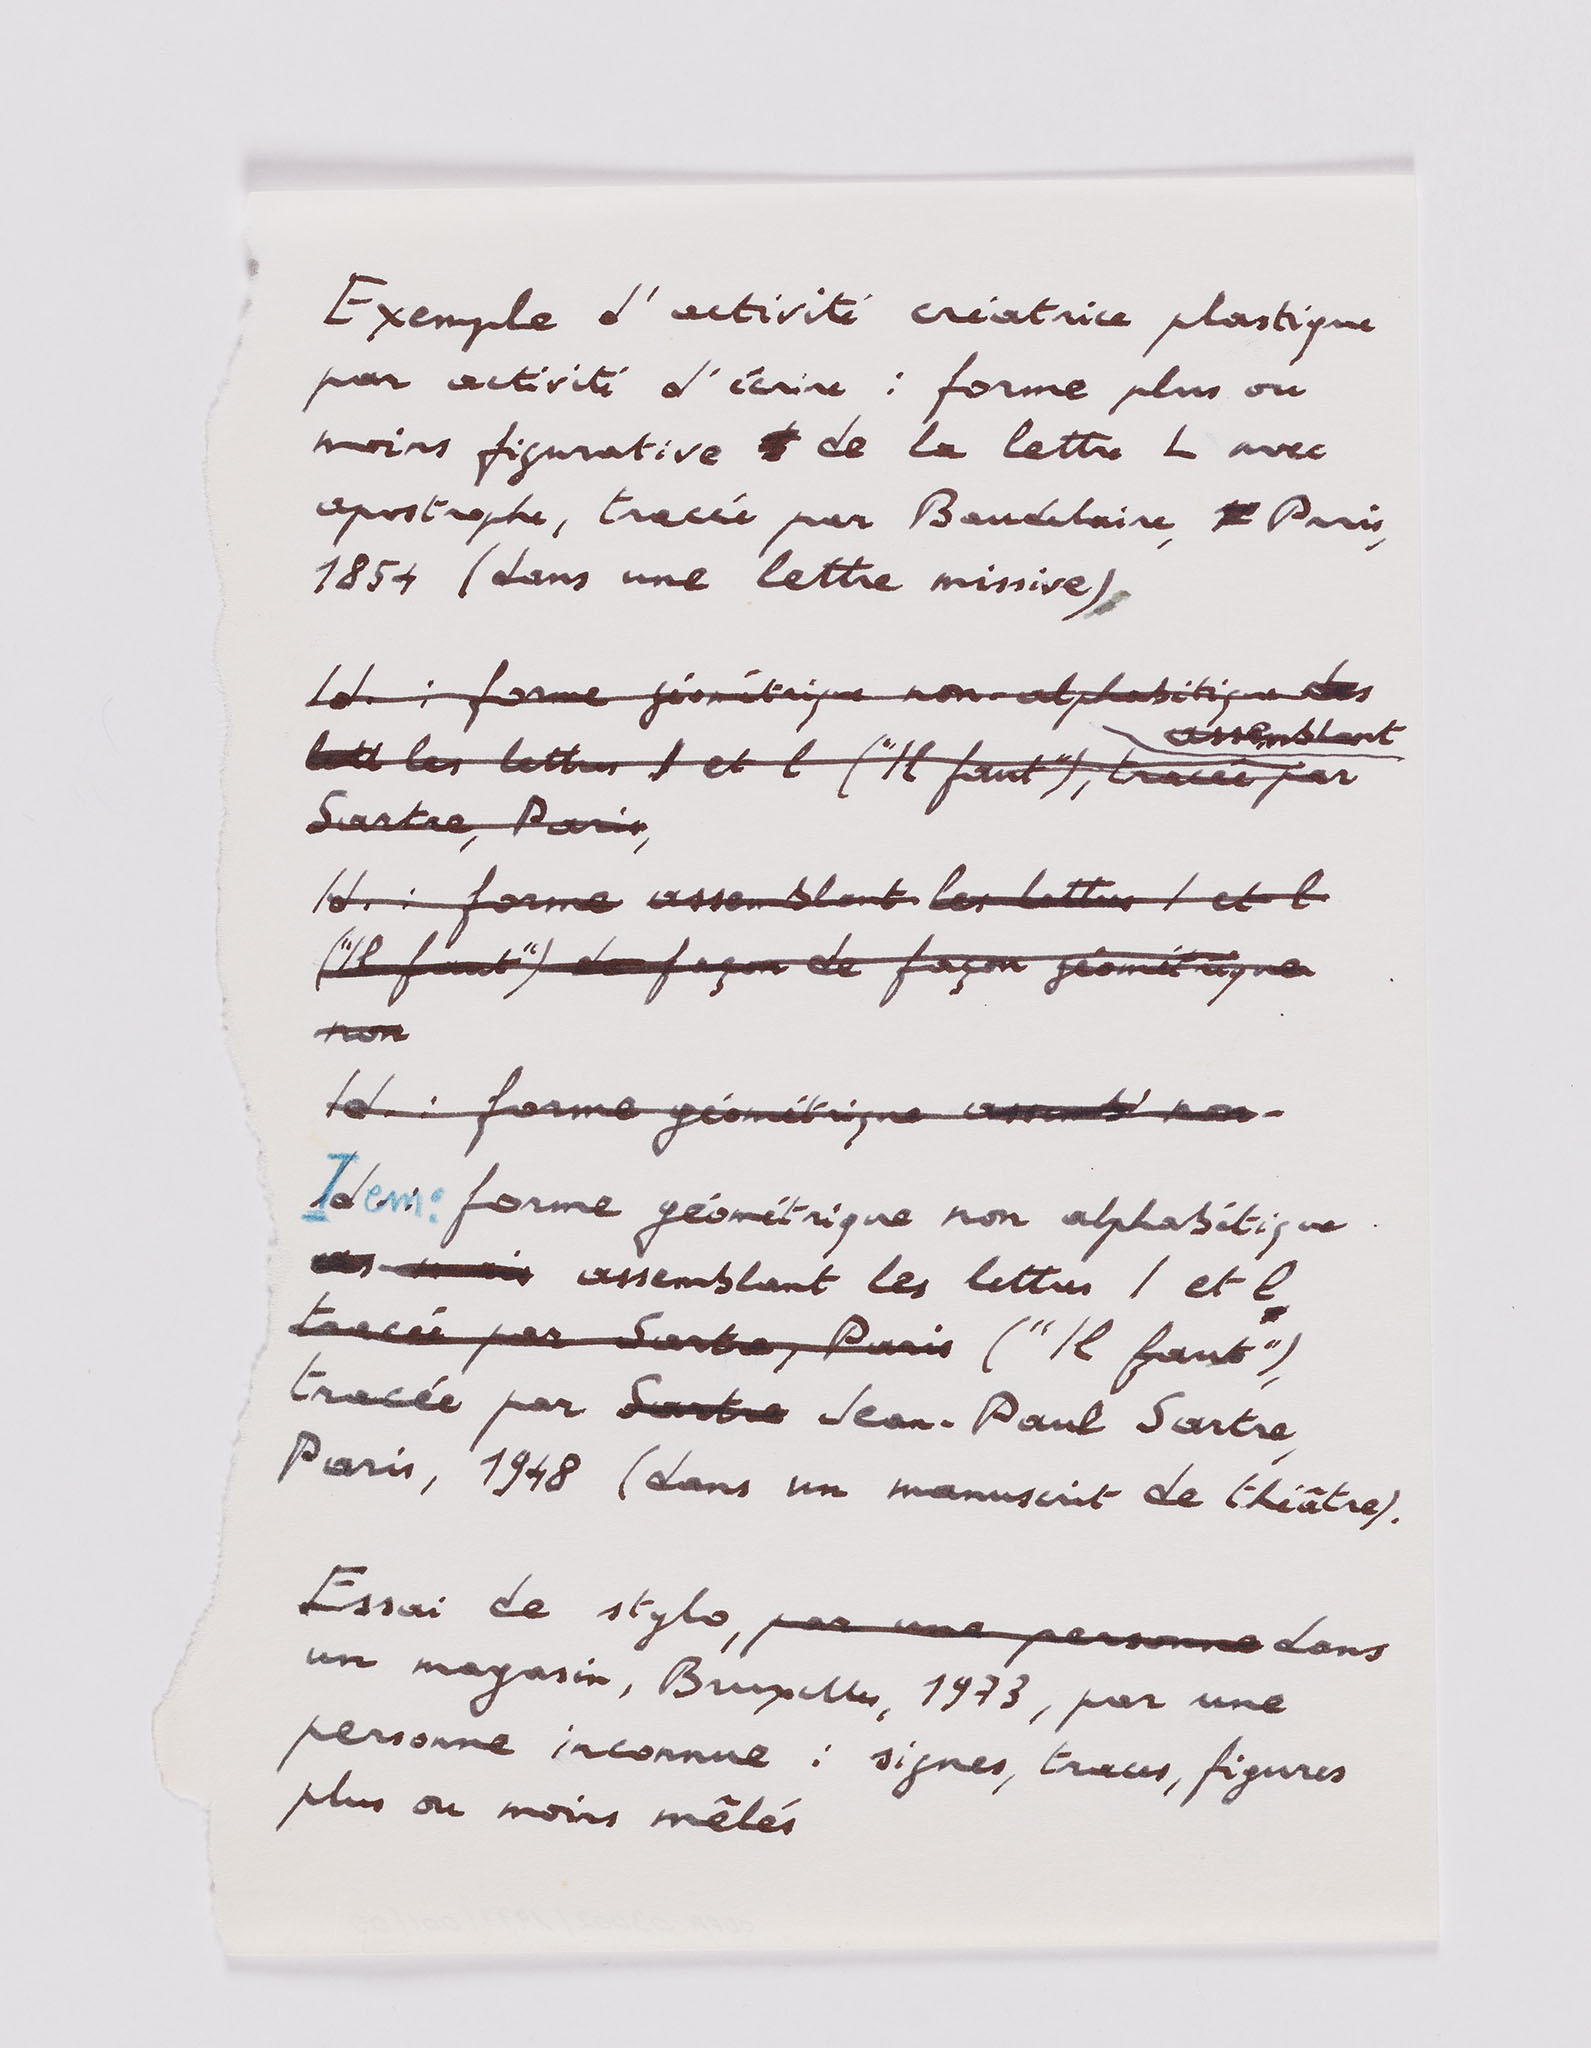 Exemple d'activité créatrice plastique
par activité d'écrire : forme plus ou
moins figurative de la lettre L avec
apostrophe, tracée par Baudelaire, Paris,
1854 (dans une lettre missive)
Id. : forme géométrique non-alphabétique des
assemblant
lett les lettres I et l ("Il faut"), tracée par
Sartre, Paris,
Id. : forme assemblant les lettres I et l
("Il faut") de façon de façon géométrique
non
Id. : forme géométrique assemb non-
Idem: forme géométrique non alphabétique
assemblant les lettres I et l
tracée par Sartre, Paris ("Il faut"),
tracée par Sartre Jean-Paul Sartre,
Paris, 1948 (dans un manuscrit de théâtre).
Essai de stylo, par une personne dans
un magasin, Bruxelles, 1973, par une
personne inconnue : signes, traces, figures
plus ou moins mêlés